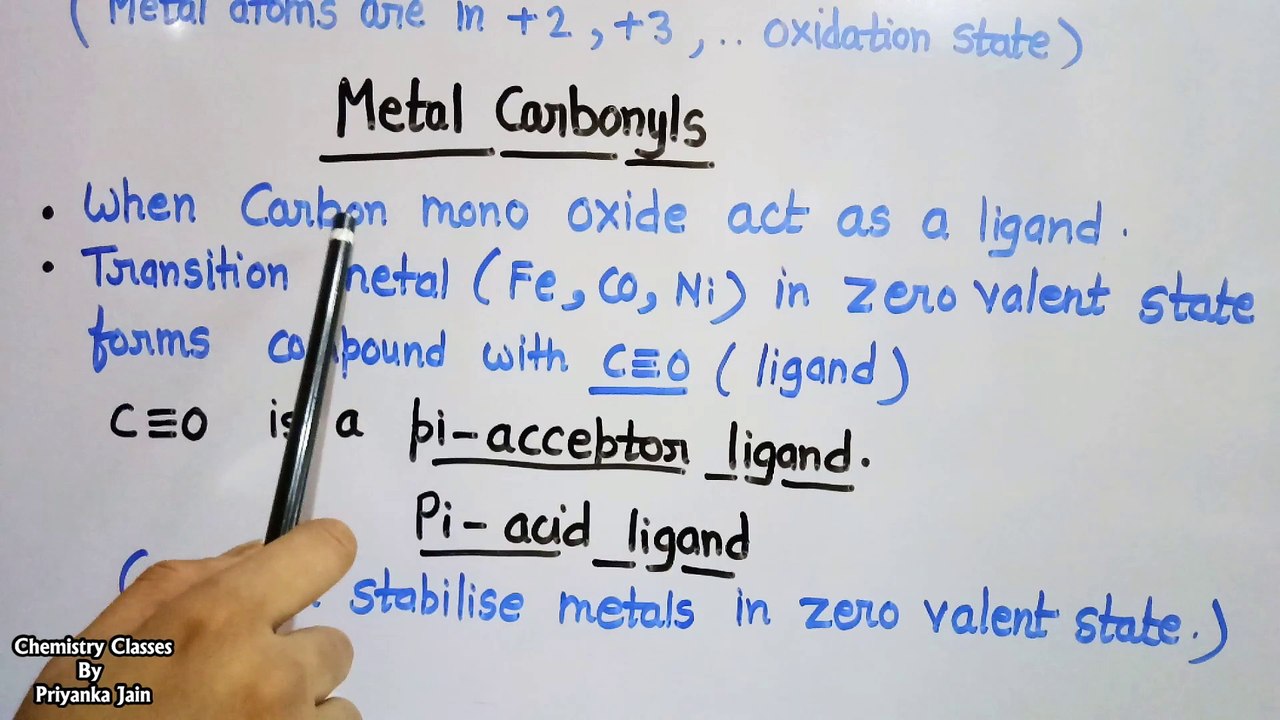 (Metal atoms are in +2, +3, .. oxidation state)
Metal Carbonyls
• When Carbon mono oxide act as a ligand.
• Transition metal (Fe, Co, Ni) in zero valent state
forms compound with C≡O (ligand)
C≡O is a pi-acceptor ligand.
Pi-acid ligand
( stabilise metals in zero valent state.)
Chemistry Classes
By
Priyanka Jain